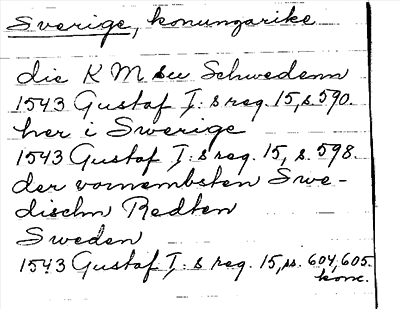 Sverige, konungarike
die K M zu Schwedenn
1543 Gustaf I:s reg. 15, s. 590.
her i Swerige
1543 Gustaf I:s reg. 15, s. 598.
der vornembsten Swe-
dischn Redten
Sweden
1543 Gustaf I:s reg. 15, ss. 604, 605.
konc.